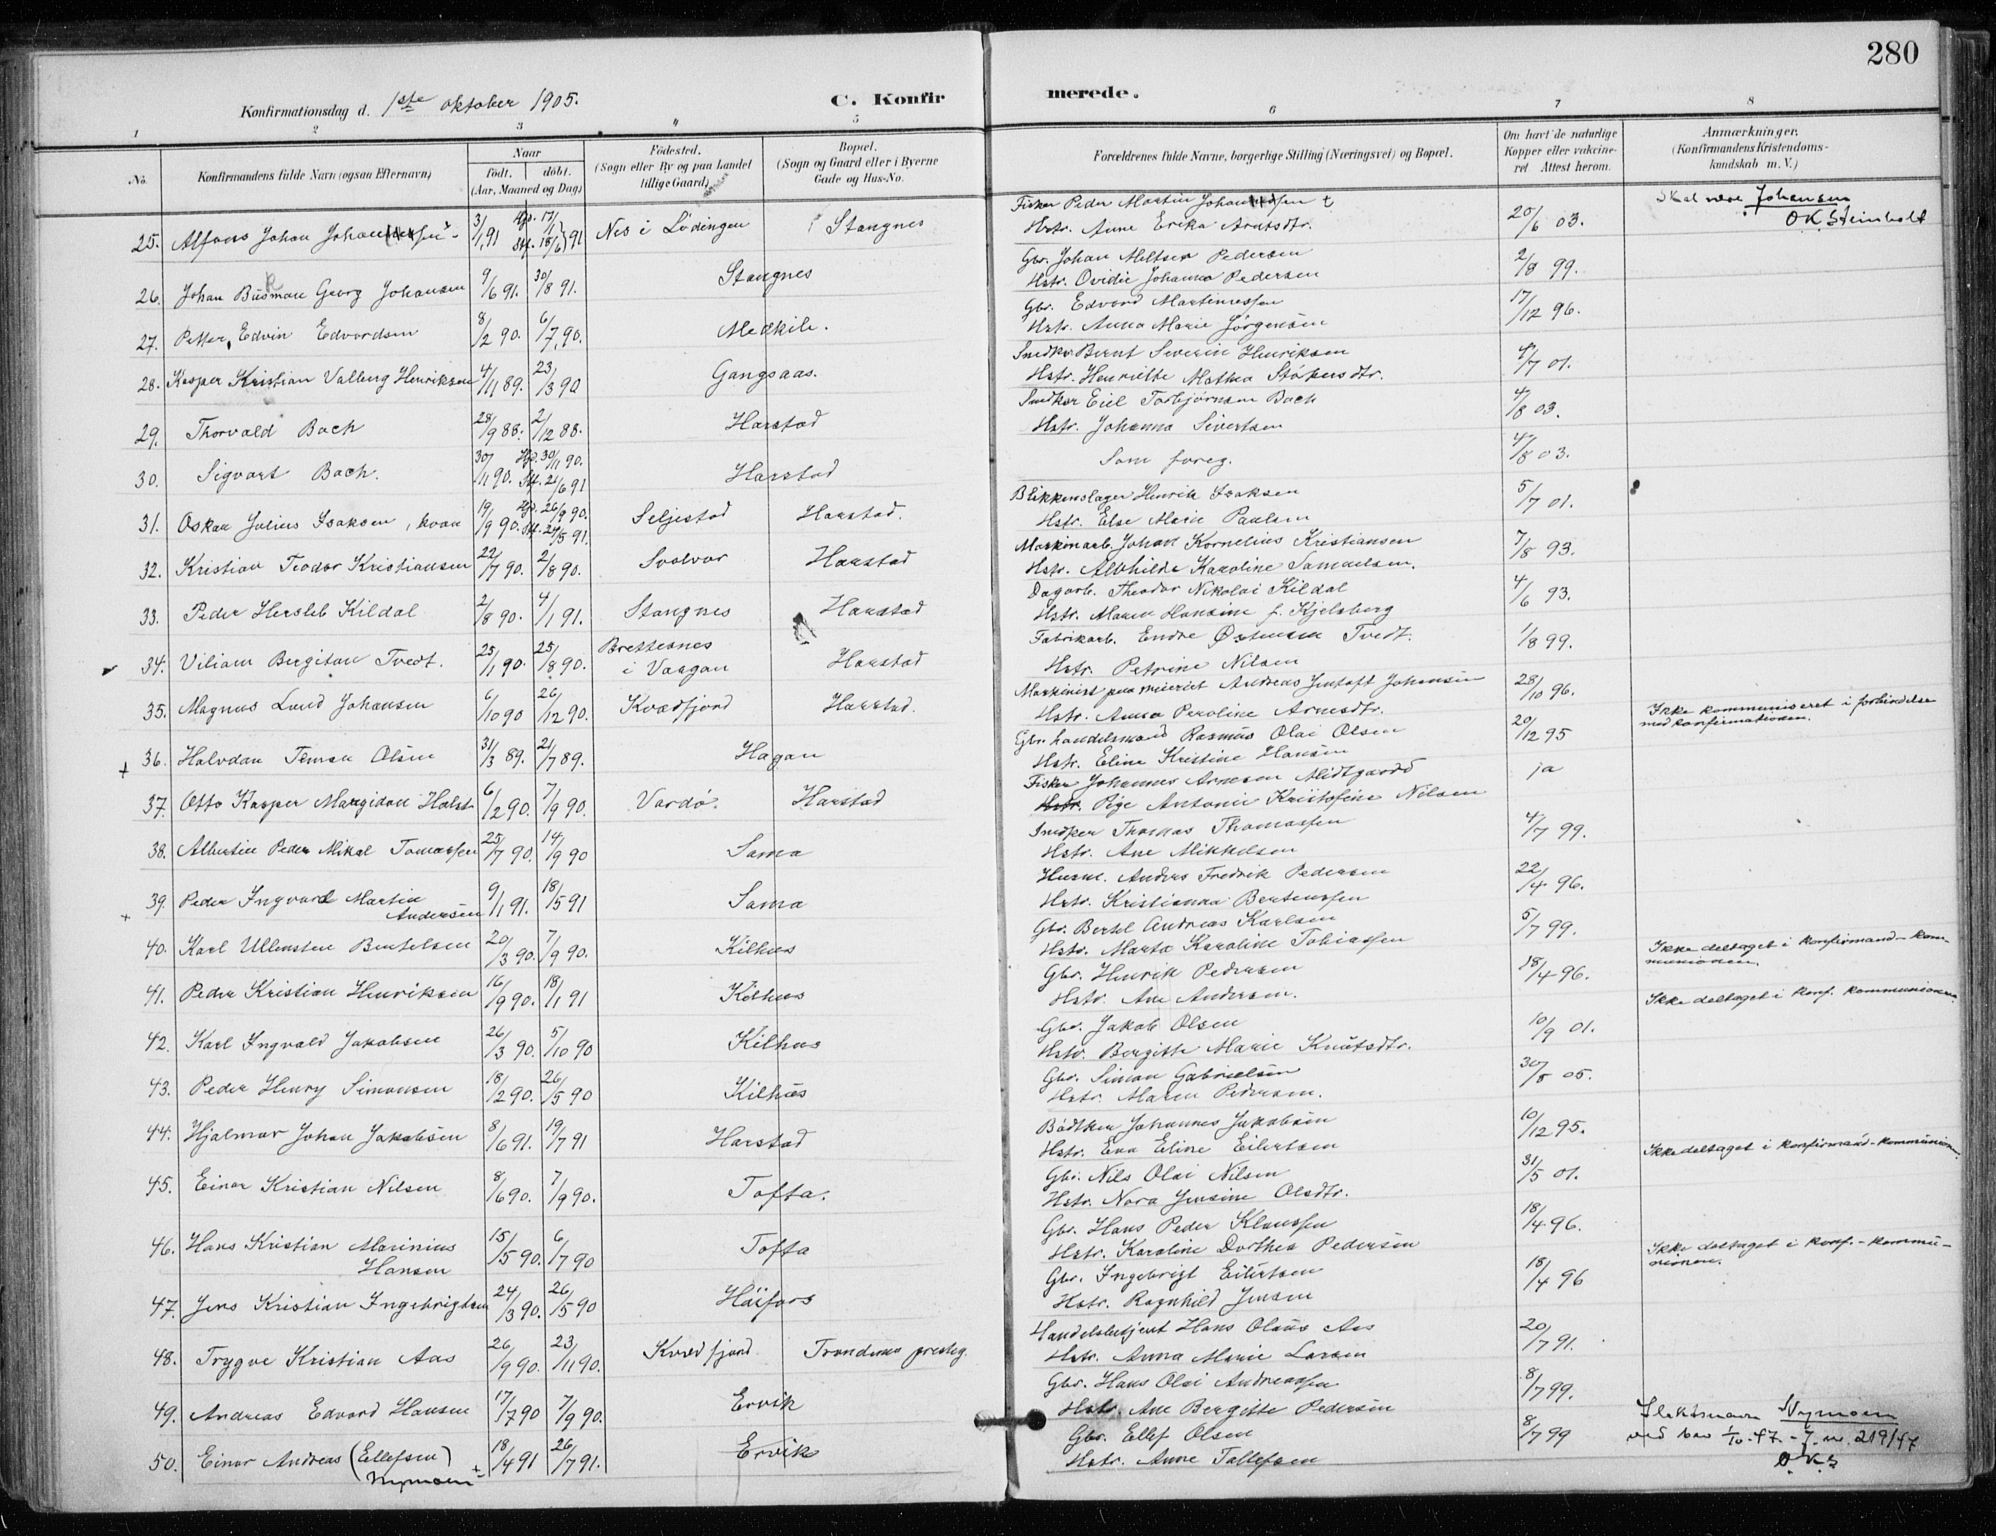 280
Konfirmationsdag d. 1ste oktober 1905.
C. Konfirmerede.
1 2 3 4 5 6 7 8
No.
Konfirmandens fulde Navn (ogsaa Efternavn)
Naar
født. døbt.
(Aar, Maaned og Dag)
Fødested.
(Sogn eller By og paa Landet
tillige Gaard)
Bopæl.
(Sogn og Gaard eller i Byerne
Gade og Hus-No.
Forældrenes fulde Navne, borgerlige Stilling (Næringsvei) og Bopæl.
Om havt de naturlige
Kopper eller vakcine-
ret Attest herom.
Anmærkninger.
(Konfirmandens Kristendoms-
kundskab m. V.)
25. Alfons Johan 3/1 91 Hjd. 17/1 Stf. 18/6 91 Nes i Lødingen Stangnes
Fisker Peder Martin
Hstr. Anne Erika Arntsdtr.
20/6 03.
Skal være Johansen
O.K. Steinholt
26. Johan Busman Georg Johansen 9/6 91. 30/8 91. Stangnes
Gbr. Johan Meltser Pedersen
Hstr. Ovidie Johanna Pedersen
2/8 99.
27. Petter Edvin Edvardsen 8/2 90. 6/7 90. Medkile.
Gbr. Edvard Martinussen
Hstr. Anna Marie Jørgensen
17/12 96.
28. Kasper Kristian Valberg Henriksen 4/11 89. 23/3 90 Gangsaas.
Snedker Bernt Severin Henriksen
Hstr. Henriette Mathea
4/7 01.
29. Thorvald Bach 28/9 88. 2/12 88. Harstad
Snedker Eiel Torbjørnsen Bach
Hstr. Johanna Sivertsen
4/8 03.
30. Sigvart Bach. 30/11 90. Hjd. 30/11 90. Stf. 21/6 91 Harstad
Som foreg.
4/8 03.
31. Oskar Julius Isaksen, kvæn 19/9 90. Hjd. 26/9 90. Stf. 24/5 91. Seljestad Harstad.
Blikkenslager Henrik Isaksen
Hstr. Else Marie Paulsen
5/7 01.
32. Kristian Teodor Kristiansen 22/7 90. 2/8 90. Svolvær Harstad
Maskinarb. Johan Kornelius Kristiansen
Hstr. Alvhilde Karoline Samuelsen.
7/8 93.
33. Peder Hersleb Kildal 2/8 90. 4/1 91. Stangnes Harstad
Dagarb. Theodor Nikolai Kildal
Hstr. Maren Hansine f. Kjelsberg
4/6 93.
34. Viliam Bergiton Tvedt. 25/1 90. 25/8 90. Brettesnes
i Vaagan Harstad
Fabrikarb. Endre Østensen Tvedt.
Hstr. Petrine Nilsen
1/8 99.
35. Magnus Lund Johansen 6/10 90 26/12 90. Kvædfjord Harstad.
Maskinist paa meieriet Andreas Jentoft Johansen
Hstr. Anna Peroline Arnesdtr.
28/10 96.
36. Halvdan Teman Olsen 31/3 89. 21/7 89. Hagan
Gbr. handelsmand Rasmus Olai Olsen
Hstr. Eline Kristine Hansen
20/12 95
Ikke kommuniseret i forbindelse
med konfirmationen.
37. Otto Kasper Margidon Holst 6/2 90. 7/9 90. Vardø. Harstad
Fisker Johannes Arnesen Midtgaard
Hstr. Pige Antonie Kristofine Nilsen
ja
38. Albertin Peder Mikal Tomassen 25/7 90. 14/9 90 Sama
Snedker Thomas Thomassen
Hstr. Ane Mikkelsen
4/7 99.
39. Peder Ingvard Martin
Andersen 9/1 91. 18/5 91 Sama
Husm. Anders Fredrik Pedersen
Hstr. Kristianna Berteussen
22/4 96.
40. Karl Ullensten Bertelsen 20/3 90. 7/9 90. Kilhus
Gbr. Bertel Andreas Karlsen
Hstr. Marta Karoline Tobiassen
5/7 99.
Ikke deltaget i konfirmand-kom-
munionen.
41. Peder Kristian Henriksen 16/9 90. 18/1 91 Kilhus
Gbr. Henrik Pedersen
Hstr. Ane Andersen.
18/4 96.
Ikke deltaget i konf. kommunionen.
42. Karl Ingvald Jakobsen 26/3 90. 5/10 90 Kilhus
Gbr. Jakob Olsen
Hstr. Bergitte Marie Knutsdtr.
10/9 01.
43. Peder Henry Simonsen 18/2 90. 26/5 90 Kilhus
Gbr. Simon Gabrielsen
Hstr. Maren Pedersen.
30/8 05.
44. Hjalmar Johan Jakobsen 8/6 91. 19/7 91 Harstad
Bødtker Johannes Jakobsen
Hstr. Eva Eline Eilertsen
10/12 95.
45. Einar Kristian Nilsen 8/6 90. 7/9 90. Tofta.
Gbr. Nils Olai Nilsen
Hstr. Nora Jensine Olsdtr.
31/5 01.
Ikke deltaget i konfirmand-kommunion.
46. Hans Kristian Marinius
Hansen 15/5 90. 6/7 90 Tofta
Gbr. Hans Peder Klaussen
Hstr. Karoline Dorthea Pedersen
18/4 96.
47. Jens Kristian Ingebrigtsen 24/3 90. 26/5 90 Høifors
Gbr. Ingebrigt Eilertsen
Hstr. Ragnhild Jensen
18/4 96
Ikke deltaget i konf.-kommu-
nionen.
48. Trygve Kristian Aas 26/9 90. 23/11 90. Kvædfjord Trondenes presteg.
Handelsbetjent Hans Olaus Aas
Hstr. Anna Marie Larsen
20/7 91.
49. Andreas Edvard Hansen 17/7 90 7/9 90. Ervik
Gbr. Hans Olai Andreassen
Hstr. Ane Bergitte Pedersen
8/7 99.
50. Einar Andreas (Ellefsen)
Nymoen 18/4 91 26/7 91. Ervik
Gbr. Ellef Olsen
Hstr. Anne Tollefsen
8/7 99
Slektsnavn Nymoen
ved bev 1/10.47. - J. nr. 219/47
O.K.S